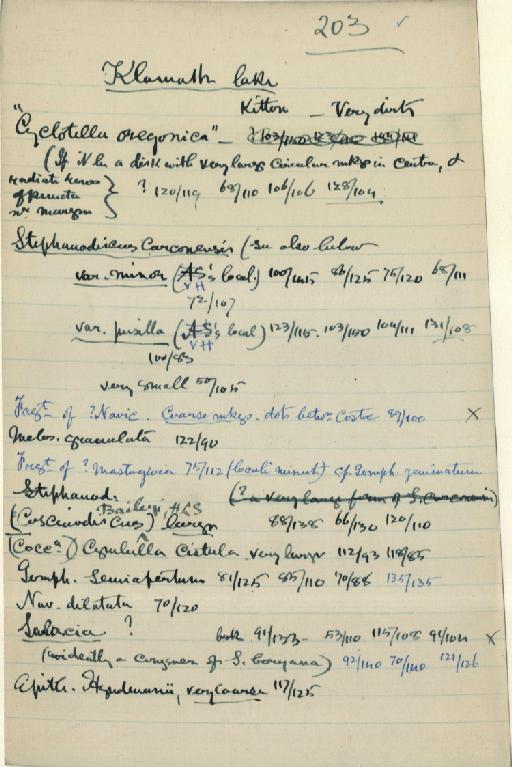 203 ✓
Klamath lake
Kitton _ Very dirty
"Cyclotella oregonica" —
(If it be a disk with very large circular mkgs in centre, &
radiate rows
of puncta
nr margin } ? 120/119 68/110 106/106 128/104
Stephanodiscus Carconensis (see also below
var. minor (AS's local) 100/105 86/125 75/120 68/111
VH
72/107
var. pusilla (AS's local) 123/115. 103/120 104/111 131/108
VH
100/83
very small 50/105
Fragt of ? Navic. Coarse mkgs. dots betwn Costae 89/100 X
Melos. granulata 122/90
Fragt of ? Mastogloia 75/112 (loculi minute) cf. Gomph. geminatum
Stephanod. (? a very large form of S. Carconensis)
Baileyi HLS
(Coscinodiscus) large 88/138 66/130 120/110
(Cocca) Cymbella Cistula very large 112/93 118/85
Gomph. Semiapertum 81/125 85/110 70/88 135/135
Nav. dilatata 70/120
Salacia ? 91/133 - 53/110 115/108 94/101 X
(evidently a congener of S. boryana) 92/110 70/110 121/126
Epith. Hyndmanii, very coarse 117/125